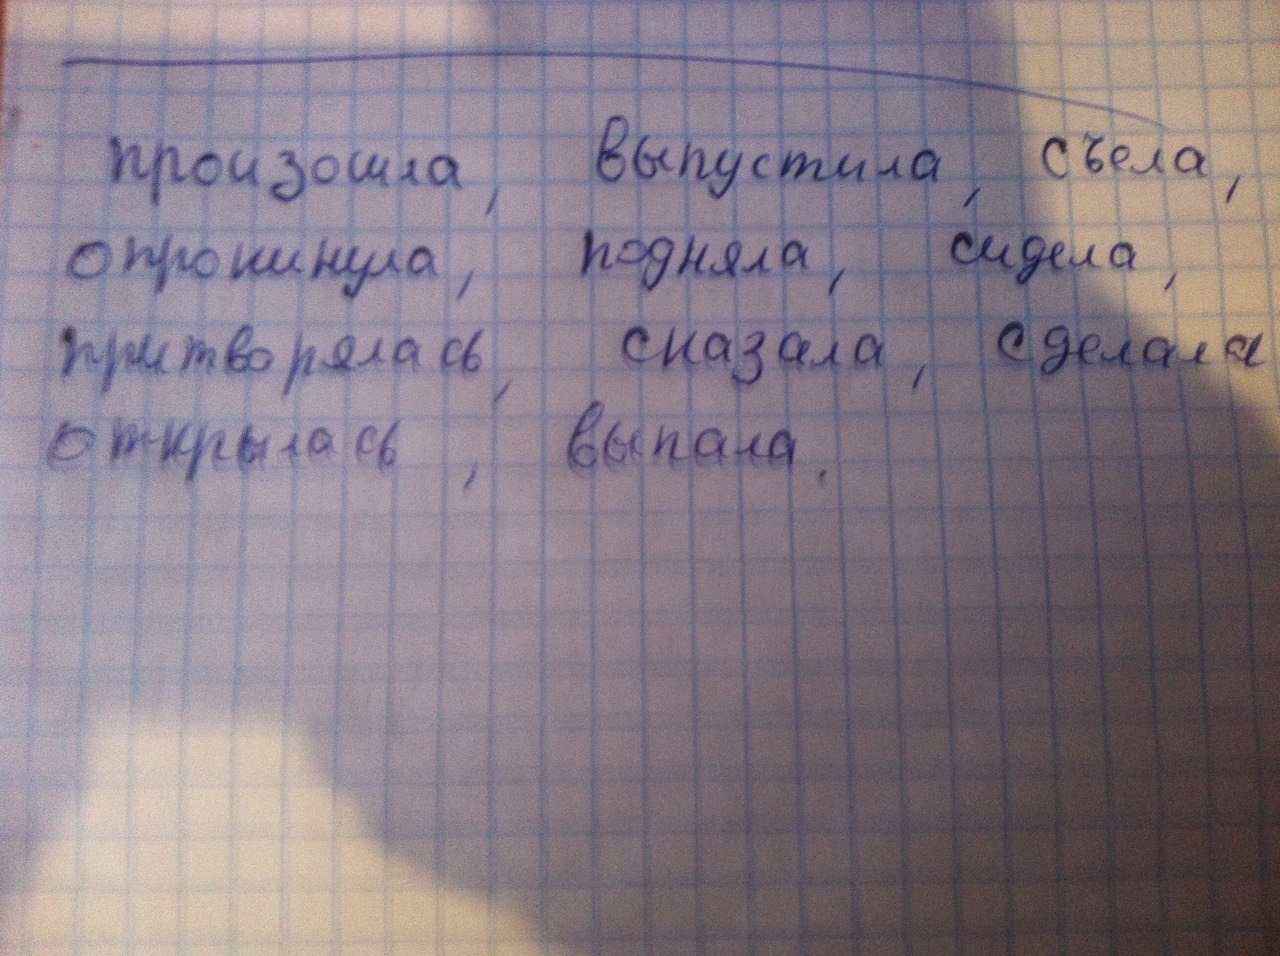 произошла, выпустила, съела,
опрокинула, подняла, сидела,
притворялась, сказала, сделала
открылась, выпала.